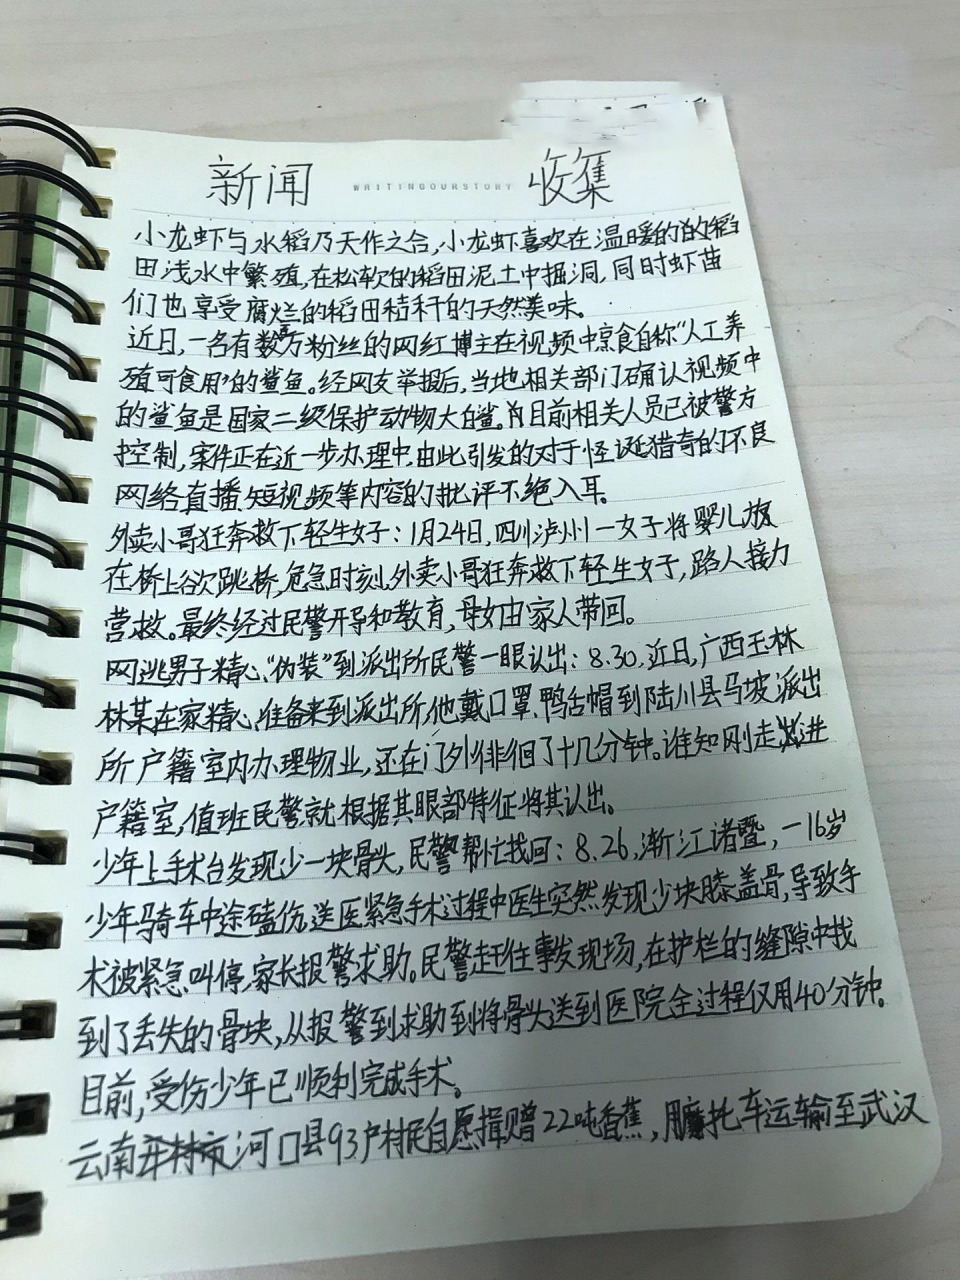 新闻 WRITINGOURSTORY 收集
小龙虾与水稻乃天作之合,小龙虾喜欢在温暖的的稻
田浅水中繁殖,在松软的稻田泥土中掘洞,同时虾苗
们也享受腐烂的稻田秸秆的天然美味。
近日,一名有数百万粉丝的网红博主在视频中烹食自称“人工养
殖可食用”的鲨鱼。经网友举报后,当地相关部门确认视频中
的鲨鱼是国家二级保护动物大白鲨。目前相关人员已被警方
控制,案件正在近一步办理中,由此引发的对于怪诞猎奇的不良
网络直播,短视频等内容的批评不绝入耳。
外卖小哥狂奔救下轻生女子:1月24日,四川泸州一女子将婴儿放
在桥上欲跳桥,危急时刻,外卖小哥狂奔救下轻生女子,路人接力
营救。最终经过民警开导和教育,母女由家人带回。
网逃男子精心“伪装”到派出所民警一眼认出:8.30,近日,广西玉林
林某在家精心准备来到派出所,他戴口罩、鸭舌帽到陆川县马坡派出
所户籍室内办理物业,还在门外徘徊了十几分钟。谁知刚走进
户籍室,值班民警就根据其眼部特征将其认出。
少年上手术台发现少一块骨头,民警帮忙找回:8.26,浙江诸暨,一16岁
少年骑车中途磕伤,送医紧急手术过程中医生突然发现少块膝盖骨,导致手
术被紧急叫停,家长报警求助。民警赶往事发现场,在护栏的缝隙中找
到了丢失的骨块,从报警到求助到将骨头送到医院全过程仅用40分钟。
目前,受伤少年已顺利完成手术。
云南河口县93户村民自愿捐赠22吨香蕉,用托车运输至武汉